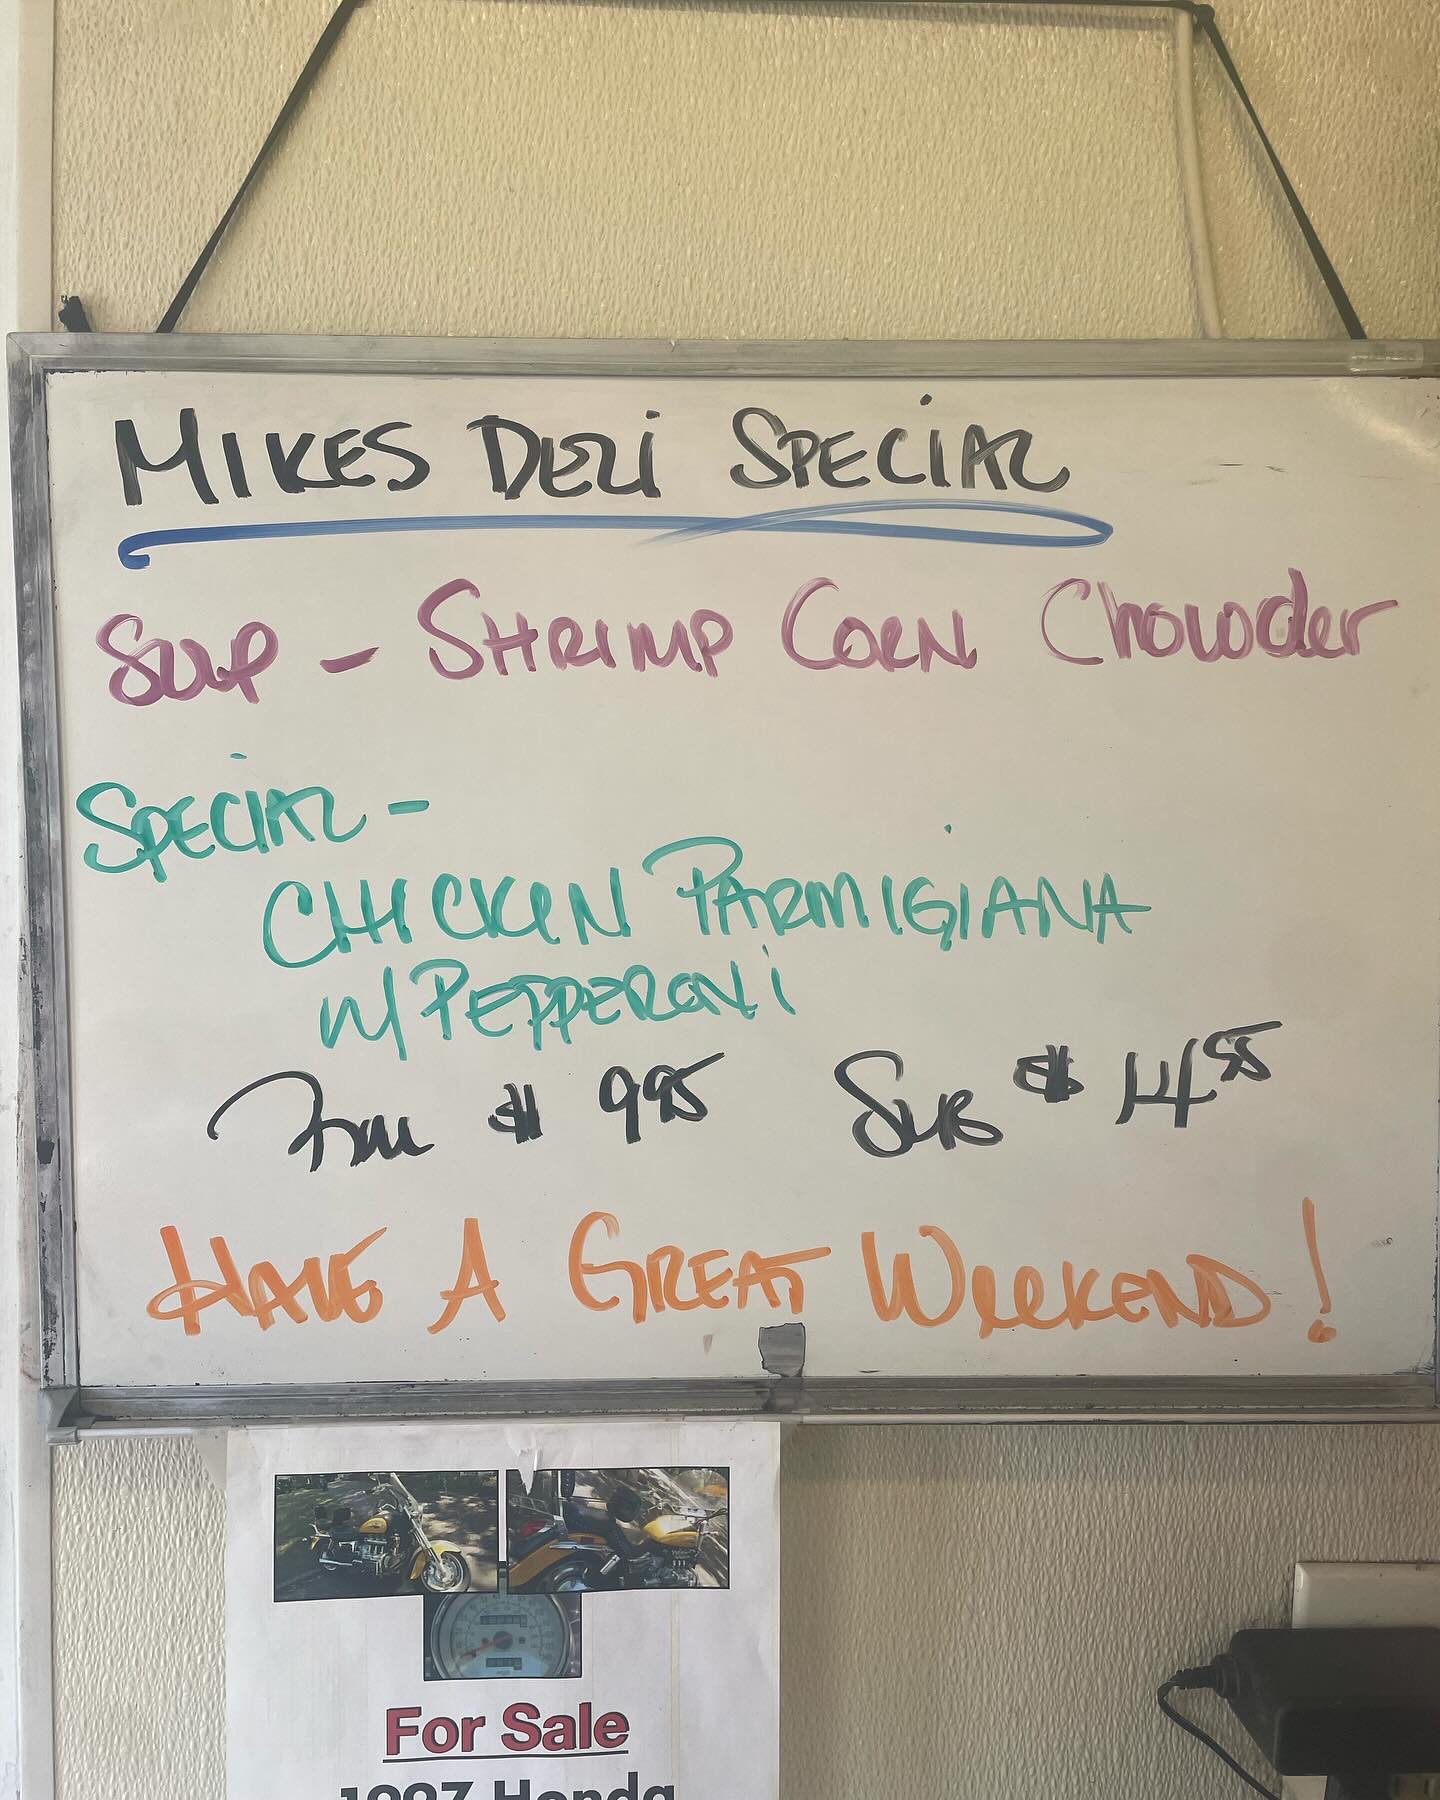 MIKES DELI SPECIAL
SOUP - SHRIMP CORN Chowder
SPECIAL -
CHICKEN PARMIGIANA
W/ PEPPERONI
$ 9.95 SUB $ 14.95
HAVE A GREAT WEEKEND!
For Sale
1997 Honda